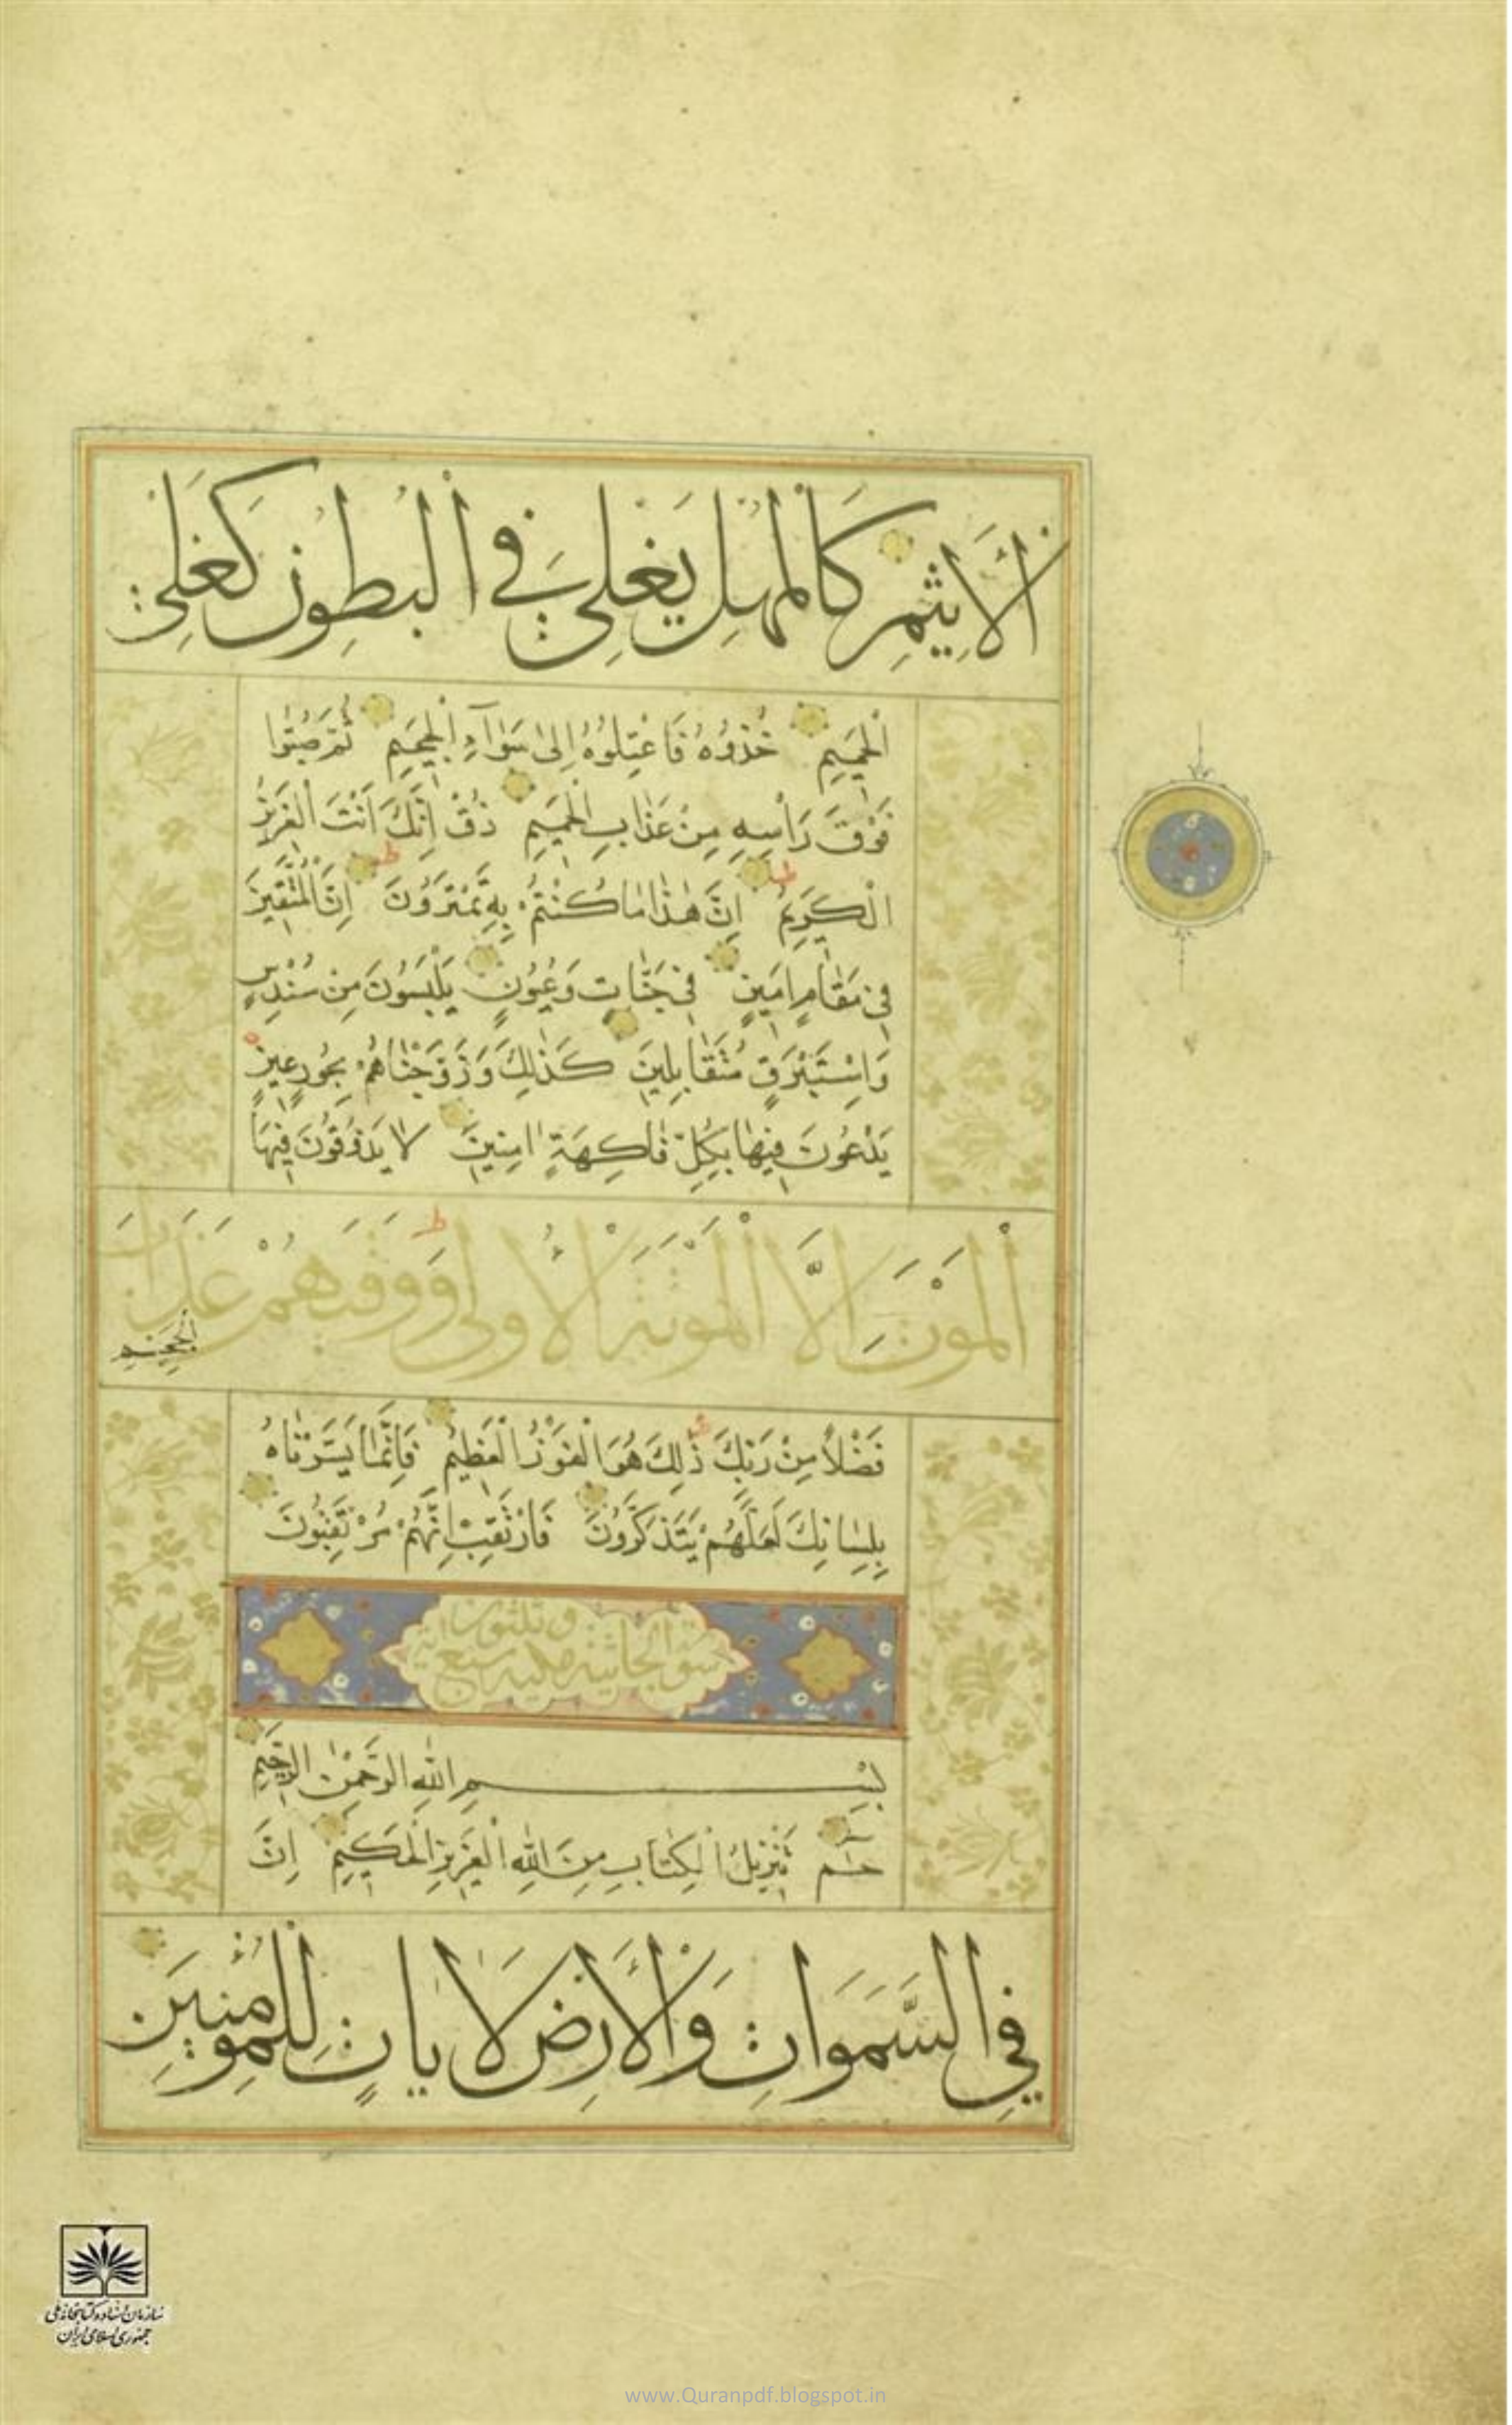 الْاَثِيمِ كَالْمُهْلِ يَغْلِي فِي الْبُطُونِ كَغَلْيِ
الْحَمِيمِ خُذُوهُ فَاعْتِلُوهُ اِلٰى سَوَآءِ الْجَحِيمِ ثُمَّ صُبُّوا
فَوْقَ رَأْسِهِ مِنْ عَذَابِ الْحَمِيمِ ذُقْ اِنَّكَ اَنْتَ الْعَزِيزُ
الْكَرِيمُ اِنَّ هٰذَا مَا كُنْتُمْ بِهِ تَمْتَرُونَ اِنَّ الْمُتَّقِينَ
فِي مَقَامٍ اَمِينٍ فِي جَنَّاتٍ وَعُيُونٍ يَلْبَسُونَ مِنْ سُنْدُسٍ
وَاِسْتَبْرَقٍ مُتَقَابِلِينَ كَذٰلِكَ وَزَوَّجْنَاهُمْ بِحُورٍ عِينٍ
يَدْعُونَ فِيهَا بِكُلِّ فَاكِهَةٍ اٰمِنِينَ لَا يَذُوقُونَ فِيهَا
الْمَوْتَ اِلَّا الْمَوْتَةَ الْاُولٰى وَوَقٰيهُمْ عَذَابَ
الْجَحِيمِ
فَضْلًا مِنْ رَبِّكَ ذٰلِكَ هُوَ الْفَوْزُ الْعَظِيمُ فَاِنَّمَا يَسَّرْنَاهُ
بِلِسَانِكَ لَعَلَّهُمْ يَتَذَكَّرُونَ فَارْتَقِبْ اِنَّهُمْ مُرْتَقِبُونَ
سورة الجاثية مكية سبع وثلثون اية
بِسْمِ اللّٰهِ الرَّحْمٰنِ الرَّحِيمِ
حٰمٓ تَنْزِيلُ الْكِتَابِ مِنَ اللّٰهِ الْعَزِيزِ الْحَكِيمِ اِنَّ
فِي السَّمَوَاتِ وَالْاَرْضِ لَاٰيَاتٍ لِلْمُؤْمِنِينَ
سازمان اسناد و کتابخانه ملی
جمهوری اسلامی ایران
www.Quranpdf.blogspot.in